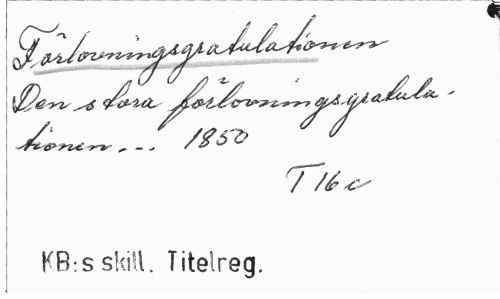 Förlovningsgratulationen
Den stora förlovningsgratula-
tionen... 1850
T 16 c
KB:s skill. Titelreg.